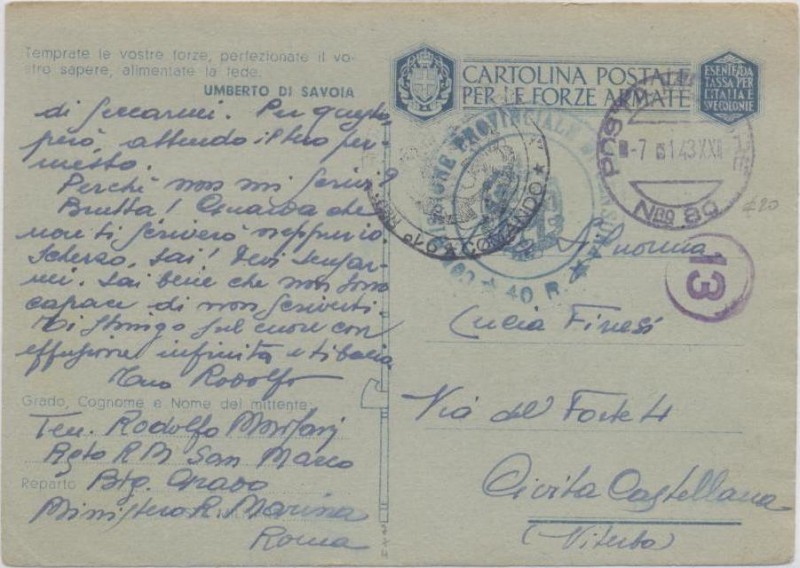 Temprate le vostre forze, perfezionate il vo-
stro sapere, alimentate la fede.
UMBERTO DI SAVOIA
di seccarmi. Per questo
però, attendo il tuo per-
messo.
Perché non mi scrivi?
Brutta! Guarda che
non ti scriverò neppure io.
Scherzo, sai! Devi
sai bene che non sono
capace di non scriverti.
Ti stringo sul cuore con
effusione infinita e ti bacio
Tuo Rodolfo
Grado, Cognome e Nome del mittente
Ten. Rodolfo
Rgto R.M. San Marco
Reparto Btg. Grado
Ministero R. Marina
Roma
CARTOLINA POSTALE
PER LE FORZE ARMATE
ESENTE DA
TASSA PER
L'ITALIA E
SUE COLONIE
PROVINCIALE
40 R.
COMANDO
-7 1 43 XXI
NRO 89
€20
13
Signorina
Lucia Finesi
Via del Forte 4
Civita Castellana
(Viterbo)